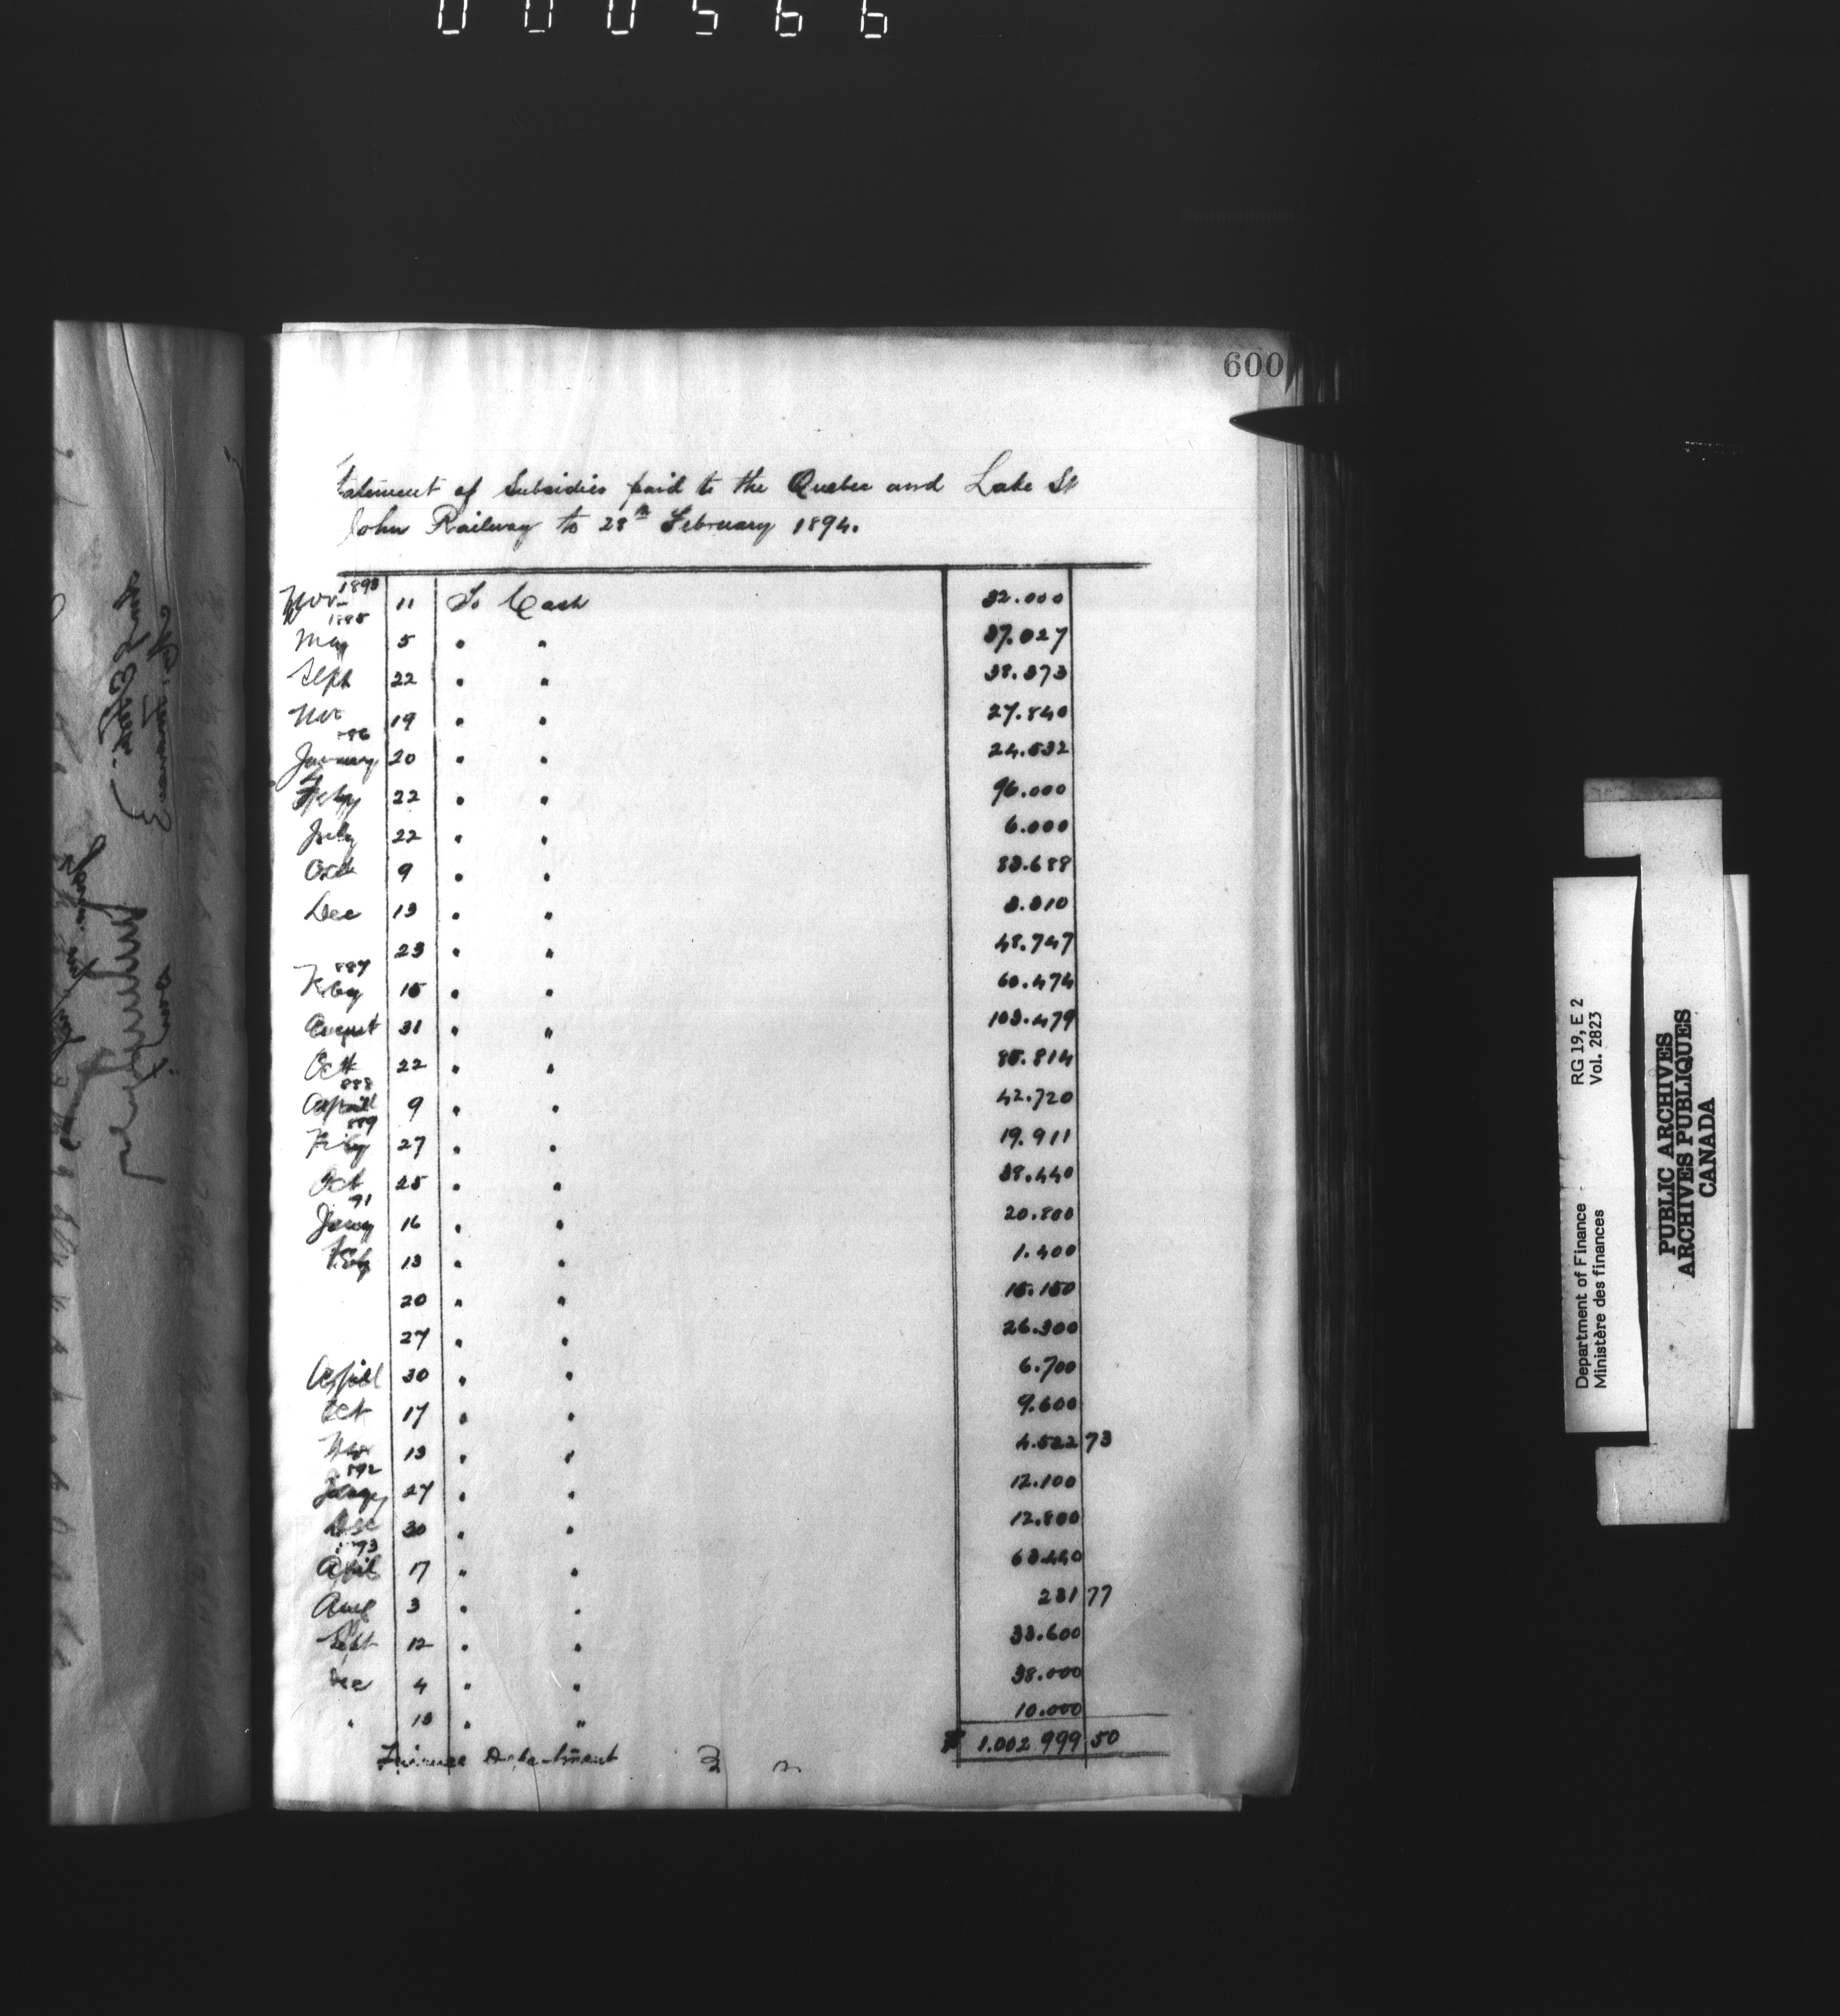 000566
600
Statement of Subsidies paid to the Quebec and Lake St
John Railway to 28th February 1894.
1893
Nov 11 To Cash 32.000
1885
May 5 " " 37.027
Sept 22 " " 38.373
Nov 19 " " 27.840
886
January 20 " " 24.532
Feby 22 " " 96.000
July 22 " " 6.000
Oct 9 " " 83.688
Dec 13 " " 3.310
23 " " 48.747
887
Feby 15 " " 60.474
August 31 " " 103.479
Oct 22 " " 85.814
888
April 9 " " 42.720
889
Feby 27 " " 19.911
Oct 25 " " 38.440
91
Jany 16 " " 20.800
Feby 13 " " 1.400
20 " " 15.150
27 " " 26.300
April 30 " " 6.700
Oct 17 " " 9.600
Nov 13 " " 4.522 73
892
Jany 27 " " 12.100
Dec 30 " " 12.800
1893
April 17 " " 63.440
Aug 3 " " 231 77
Sept 12 " " 33.600
Dec 4 " " 38.000
" 13 " " 10.000
$ 1.002 999 50
Finance Department
Department of Finance
Ministère des finances
RG 19, E 2
Vol. 2823
PUBLIC ARCHIVES
ARCHIVES PUBLIQUES
CANADA